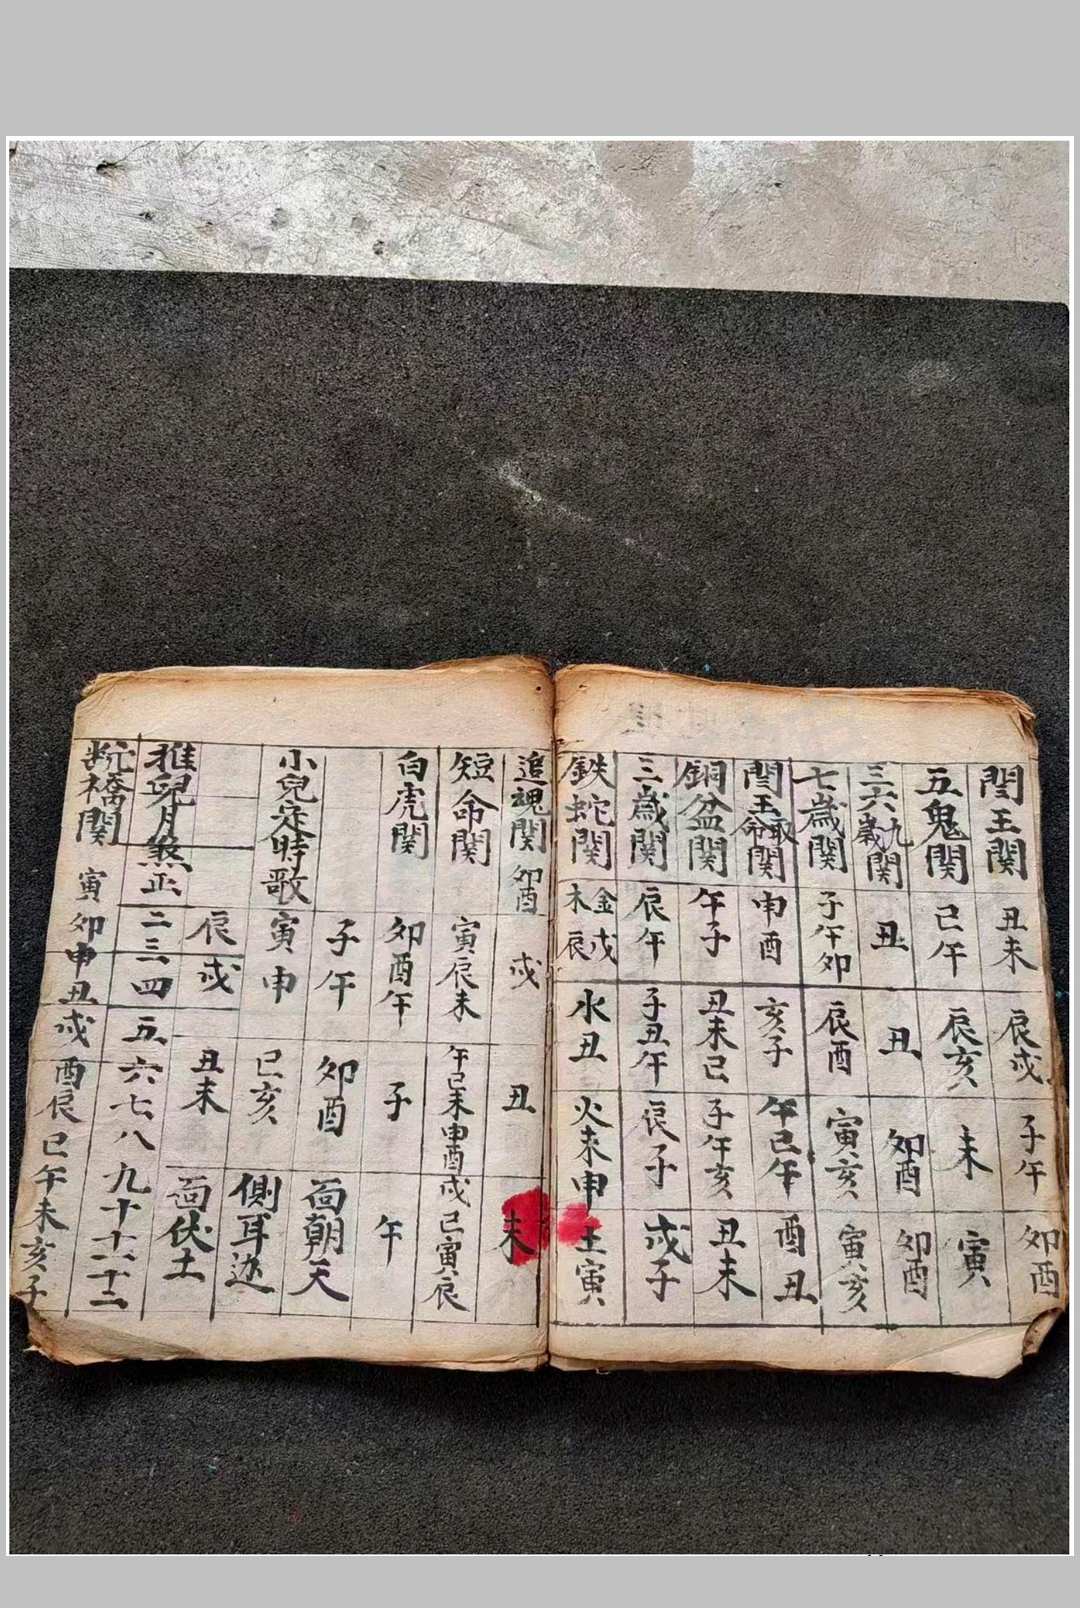 閆王關 丑未 辰戌 子午 卯酉
五鬼關 巳午 辰亥 未 寅
三六九歲關 丑 丑 卯酉 卯酉
七歲關 子午卯 辰酉 寅亥 寅亥
閆王取命關 申酉 亥子 午巳午 酉丑
銅盆關 午子 丑未巳 子午亥 丑未
三歲關 辰午 子丑午 辰子 戌子
鉄蛇關 金戌 木辰 水丑 火未申 土寅
追魂關 卯酉 戌 丑 未
短命關 寅辰未 午巳未申酉戌巳寅辰
白虎關 卯酉午 子 午
子午 卯酉 面朝天
小兒定時歌 寅申 巳亥 側耳边
辰戌 丑未 面伏土
推兒月煞 正二三四五六七八九十十一十二
断橋關 寅卯申丑戌酉辰巳午未亥子